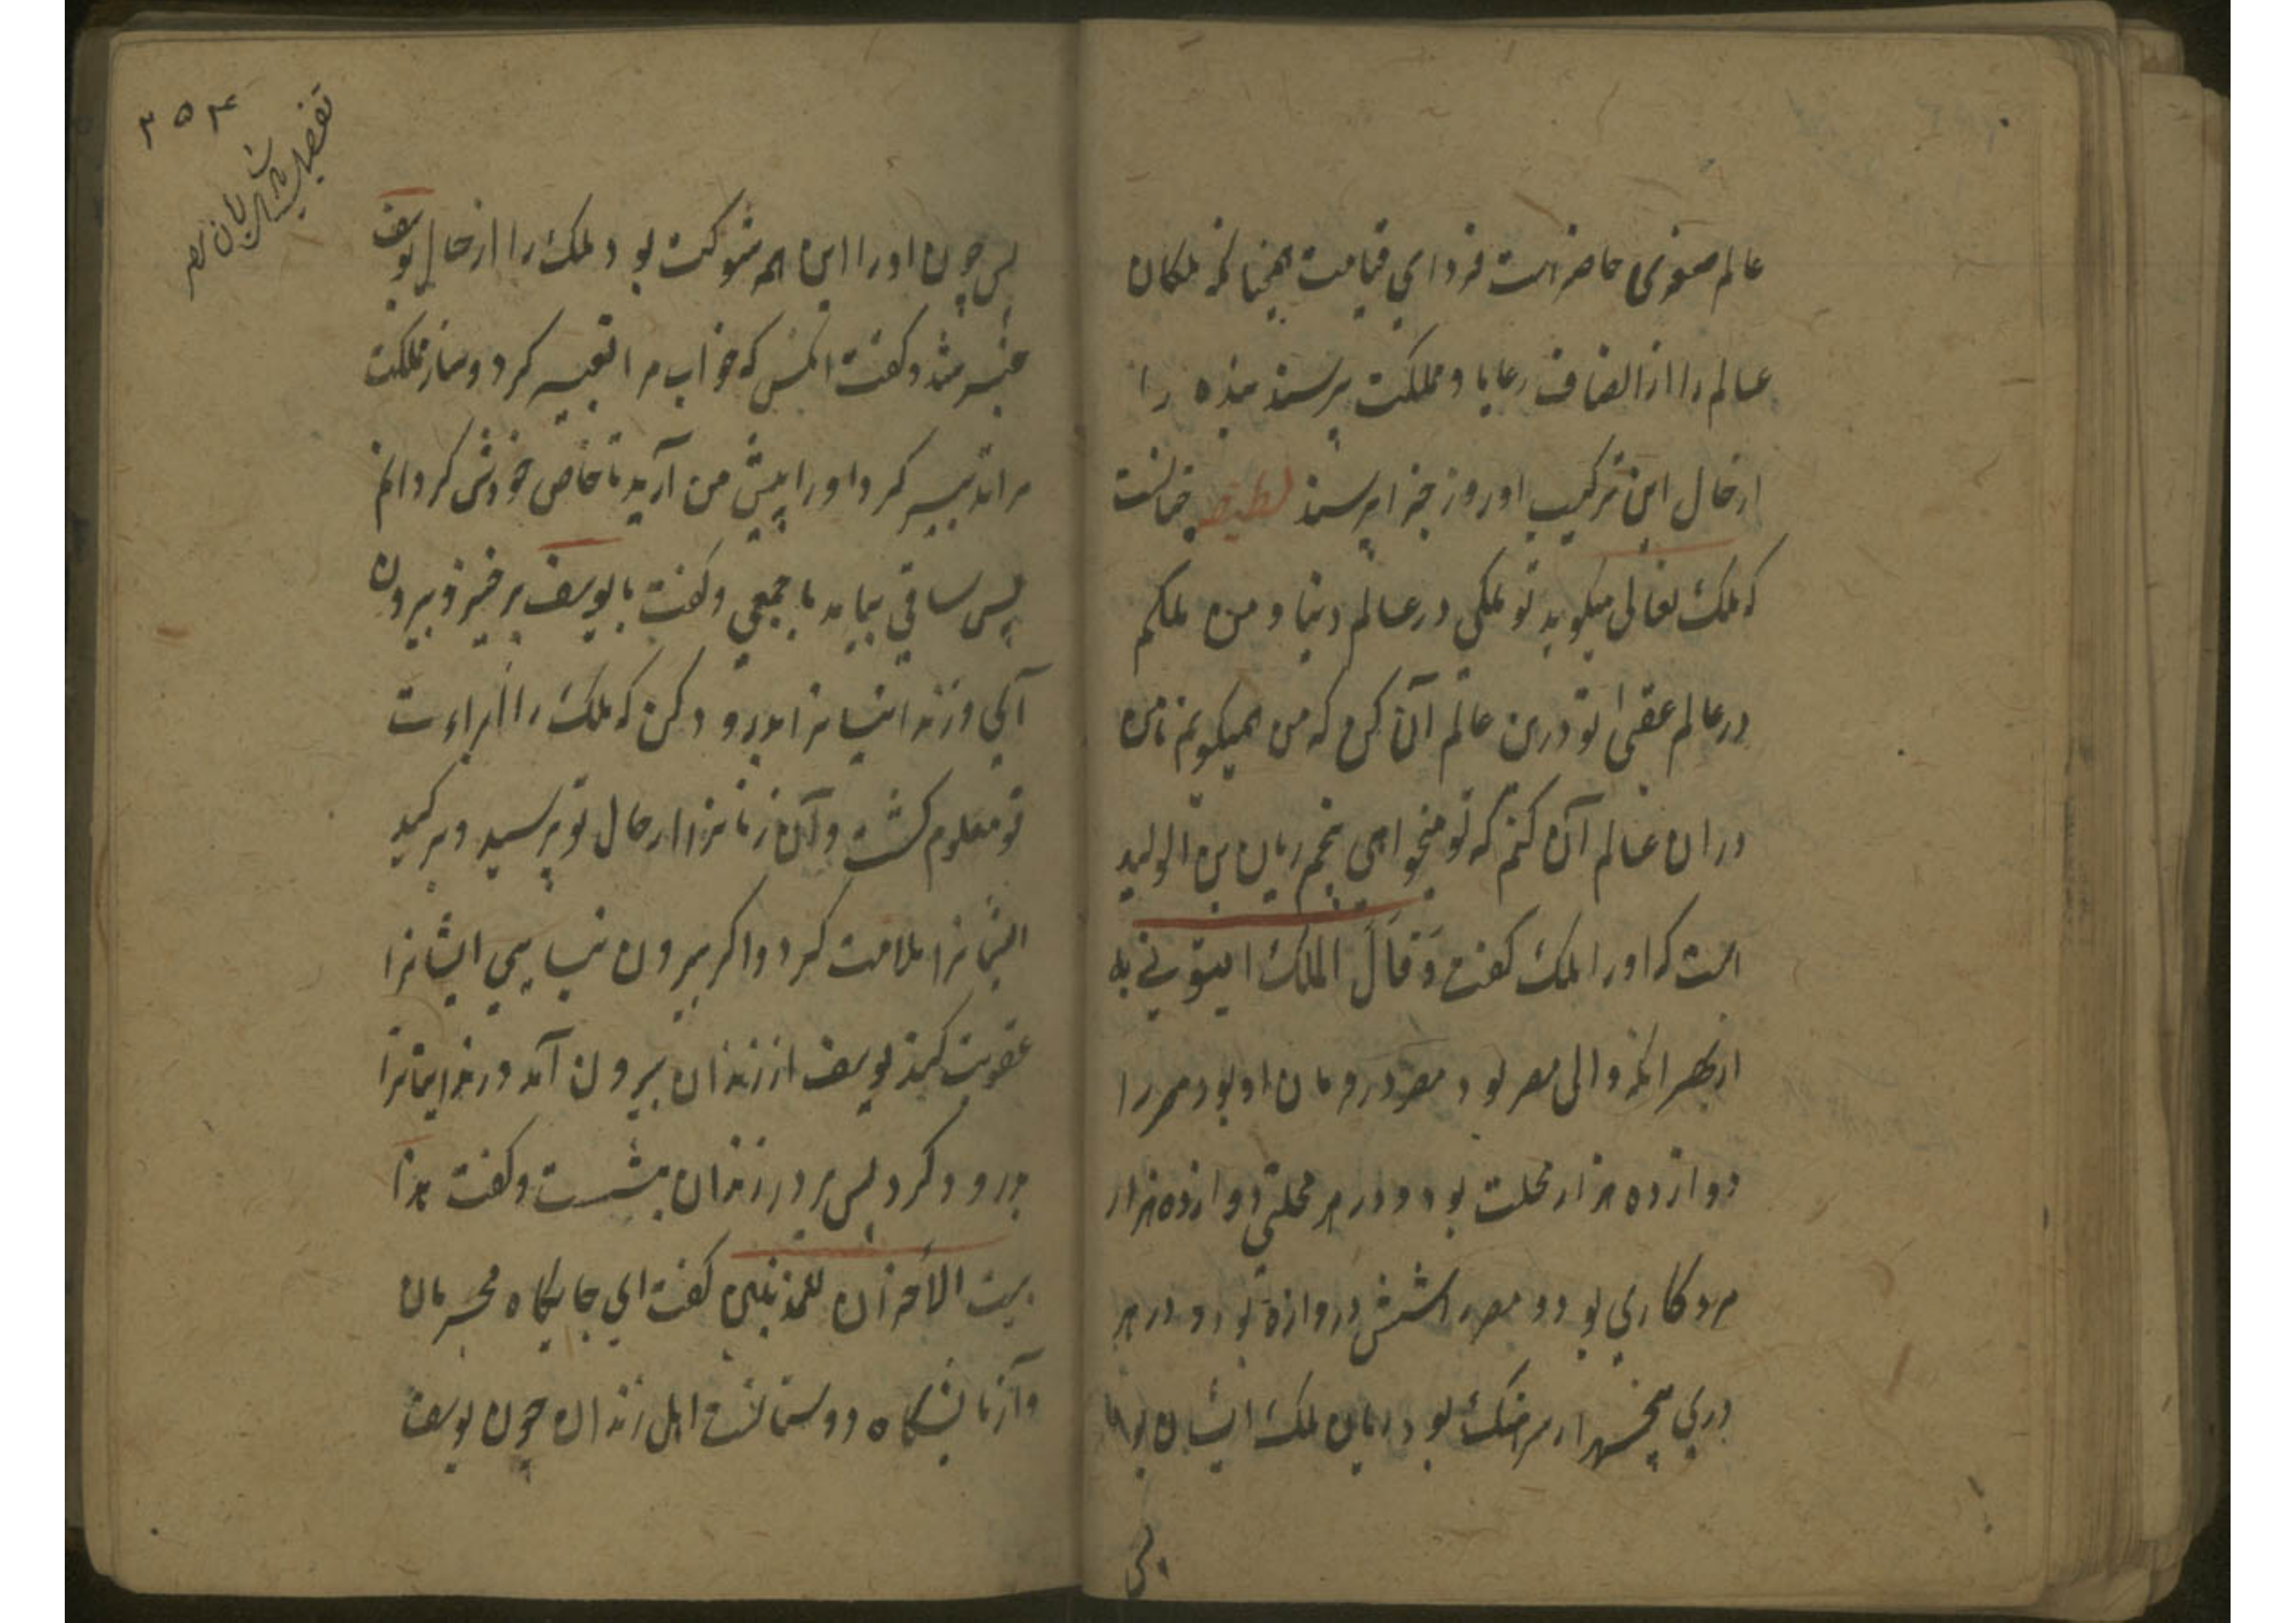 عالم صغری حاضر است فردای قیامت همچنانکه ملکان
عالم را از انصاف رعایا و مملکت پرسند بنده را
از حال این ترکیب او روز جزا پرسند لطیفه چنانست
که ملک تعالی میکوید تو ملکی در عالم دنیا و من ملکم
در عالم عقبی تو درین عالم آن کن که من همیکویم تا من
دران عالم آن کنم که تو میخواهی پنجم ریان بن الولید
است که اورا ملک کفت وَقَالَ الملک ایتونی به
از بهر انکه والی مصر بود مصر در فرمان او بود مصر را
دوازده هزار محلت بود و در هر محلتی دوازده هزار
مرد کاری بود و مصر را شش دروازه بود و در هر
دری پنجهزار سرهنک بود ریان ملک ایشان بود
پس
۲۵۴
تفصیل
مصر
پس چون اورا این همه شوکت بود ملک را از حال یوسف
خبر شد و کفت انکس که خواب مرا تعبیر کرد و ساز مملکت
مرا تدبیر کرد اورا پیش من آرید تا خاص خودش کردانم
پس ساقی بیامد با جمعی و کفت با یوسف برخیز و بیرون
آی و زندانیانرا بدرود کن که ملک را براءت
تو معلوم کشت و آن زنانرا از حال تو پرسید و بر کید
ایشانرا ملامت کرد و اکر بیرون نیایی ایشانرا
عقوبت کند یوسف از زندان بیرون آمد و زندانیانرا
بدرود کرد پس بر در زندان بنشست و کفت هذا
بیت الاحزان للمذنبین کفت ای جایکاه مجرمان
و آزمایشکاه دوستانست اهل زندان چون یوسف